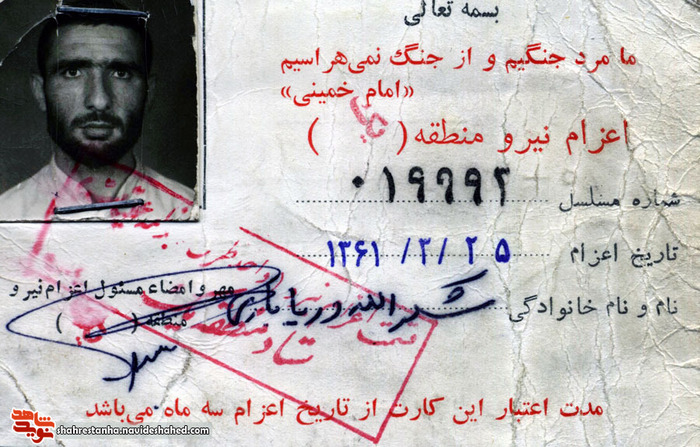 بسمه تعالی
ما مرد جنگیم و از جنگ نمی‌هراسیم
«امام خمینی»
اعزام نیرو منطقه ( )
شماره مسلسل ۰۱۹۶۹۲
تاریخ اعزام ۱۳۶۱ /۲/ ۲۵
نام و نام خانوادگی شکرالله دریا باری
مهر و امضاء مسئول اعزام نیرو
منطقه ( )
مدت اعتبار این کارت از تاریخ اعزام سه ماه می‌باشد
نوید شاهد
shahrestanha.navideshahed.com